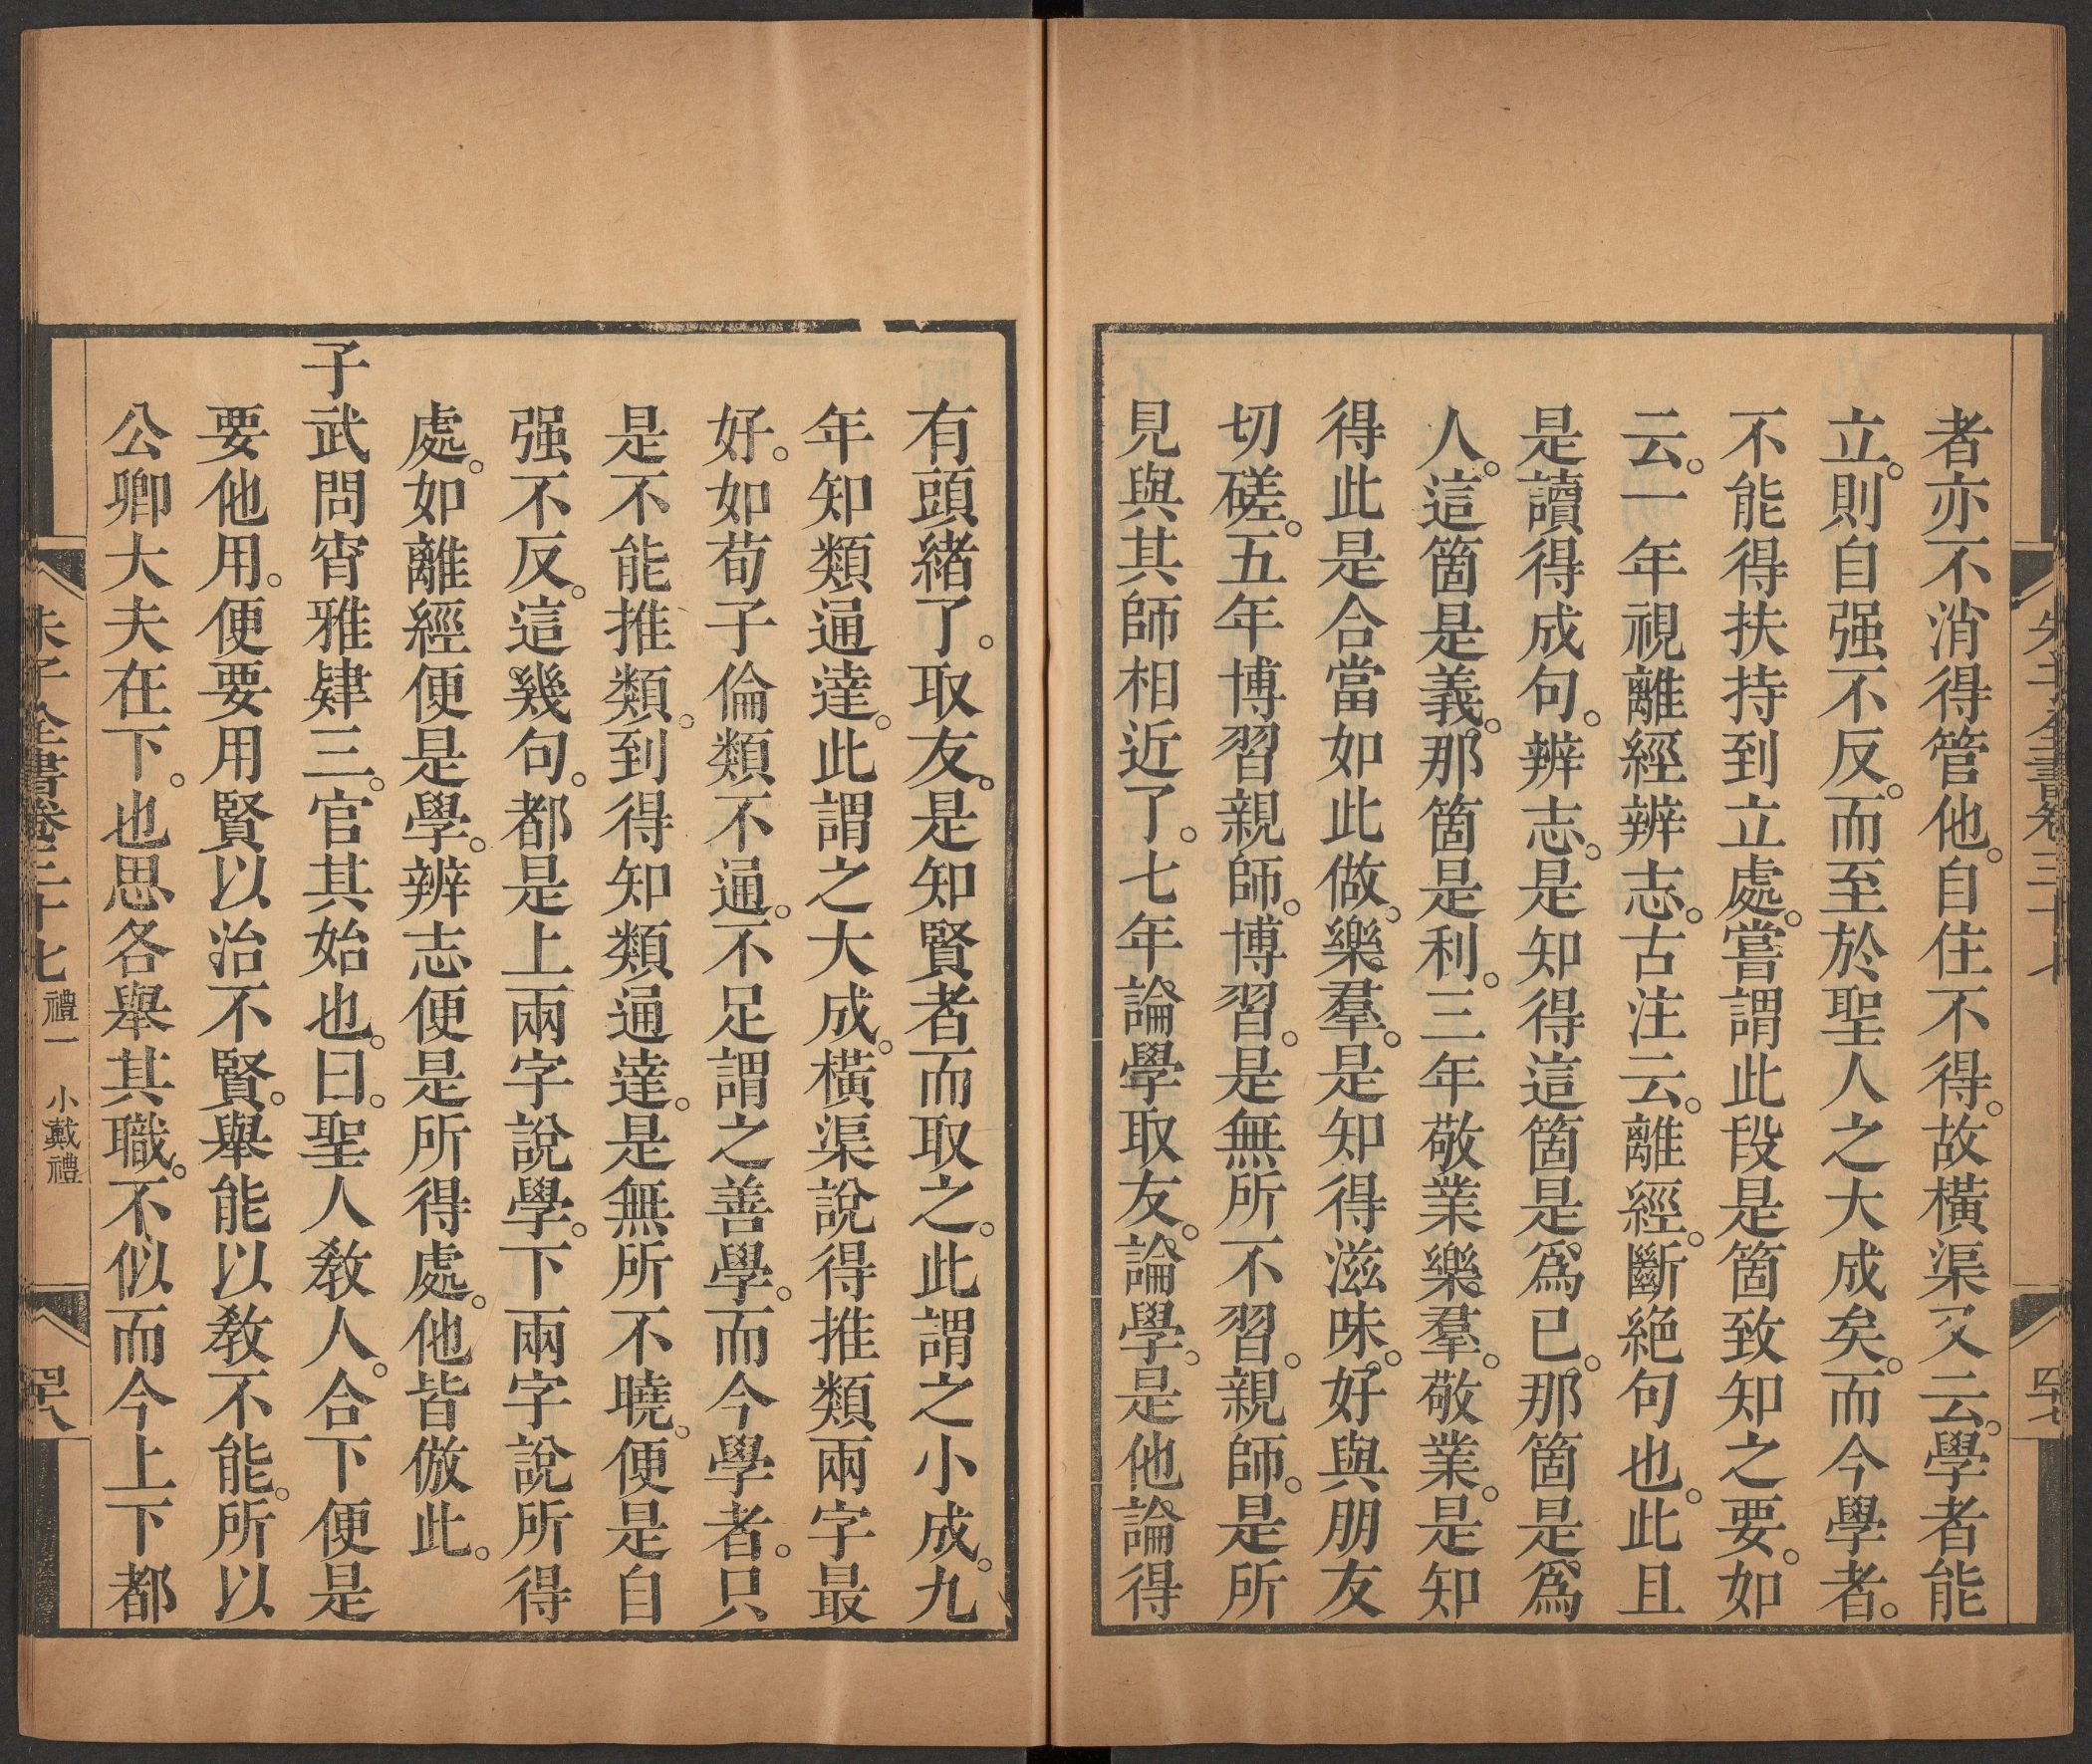 朱子全書卷三十七
四七
者亦不消得管他。自住不得。故橫渠又云。學者能
立。則自强不反。而至於聖人之大成矣。而今學者。
不能得扶持到立處。嘗謂此段是箇致知之要。如
云。一年視離經辨志。古注云。離經。斷絶句也。此且
是讀得成句。辨志。是知得這箇是爲已。那箇是爲
人。這箇是義。那箇是利。三年敬業樂羣。敬業。是知
得此是合當如此做。樂羣。是知得滋味。好與朋友
切磋。五年博習親師。博習。是無所不習。親師。是所
見與其師相近了。七年論學取友。論學。是他論得
有頭緒了。取友。是知賢者而取之。此謂之小成。九
年知類通達。此謂之大成。橫渠說得推類兩字最
好。如荀子倫類不通。不足謂之善學。而今學者。只
是不能推類。到得知類通達。是無所不曉。便是自
强不反。這幾句。都是上兩字說學。下兩字說所得
處。如離經便是學。辨志便是所得處。他皆倣此。
子武問宵雅肄三。官其始也。曰。聖人敎人。合下便是
要他用。便要用賢以治不賢。舉能以敎不能。所以
公卿大夫在下。也思各舉其職。不似而今上下都
朱子全書卷三十七 禮一 小戴禮
四八